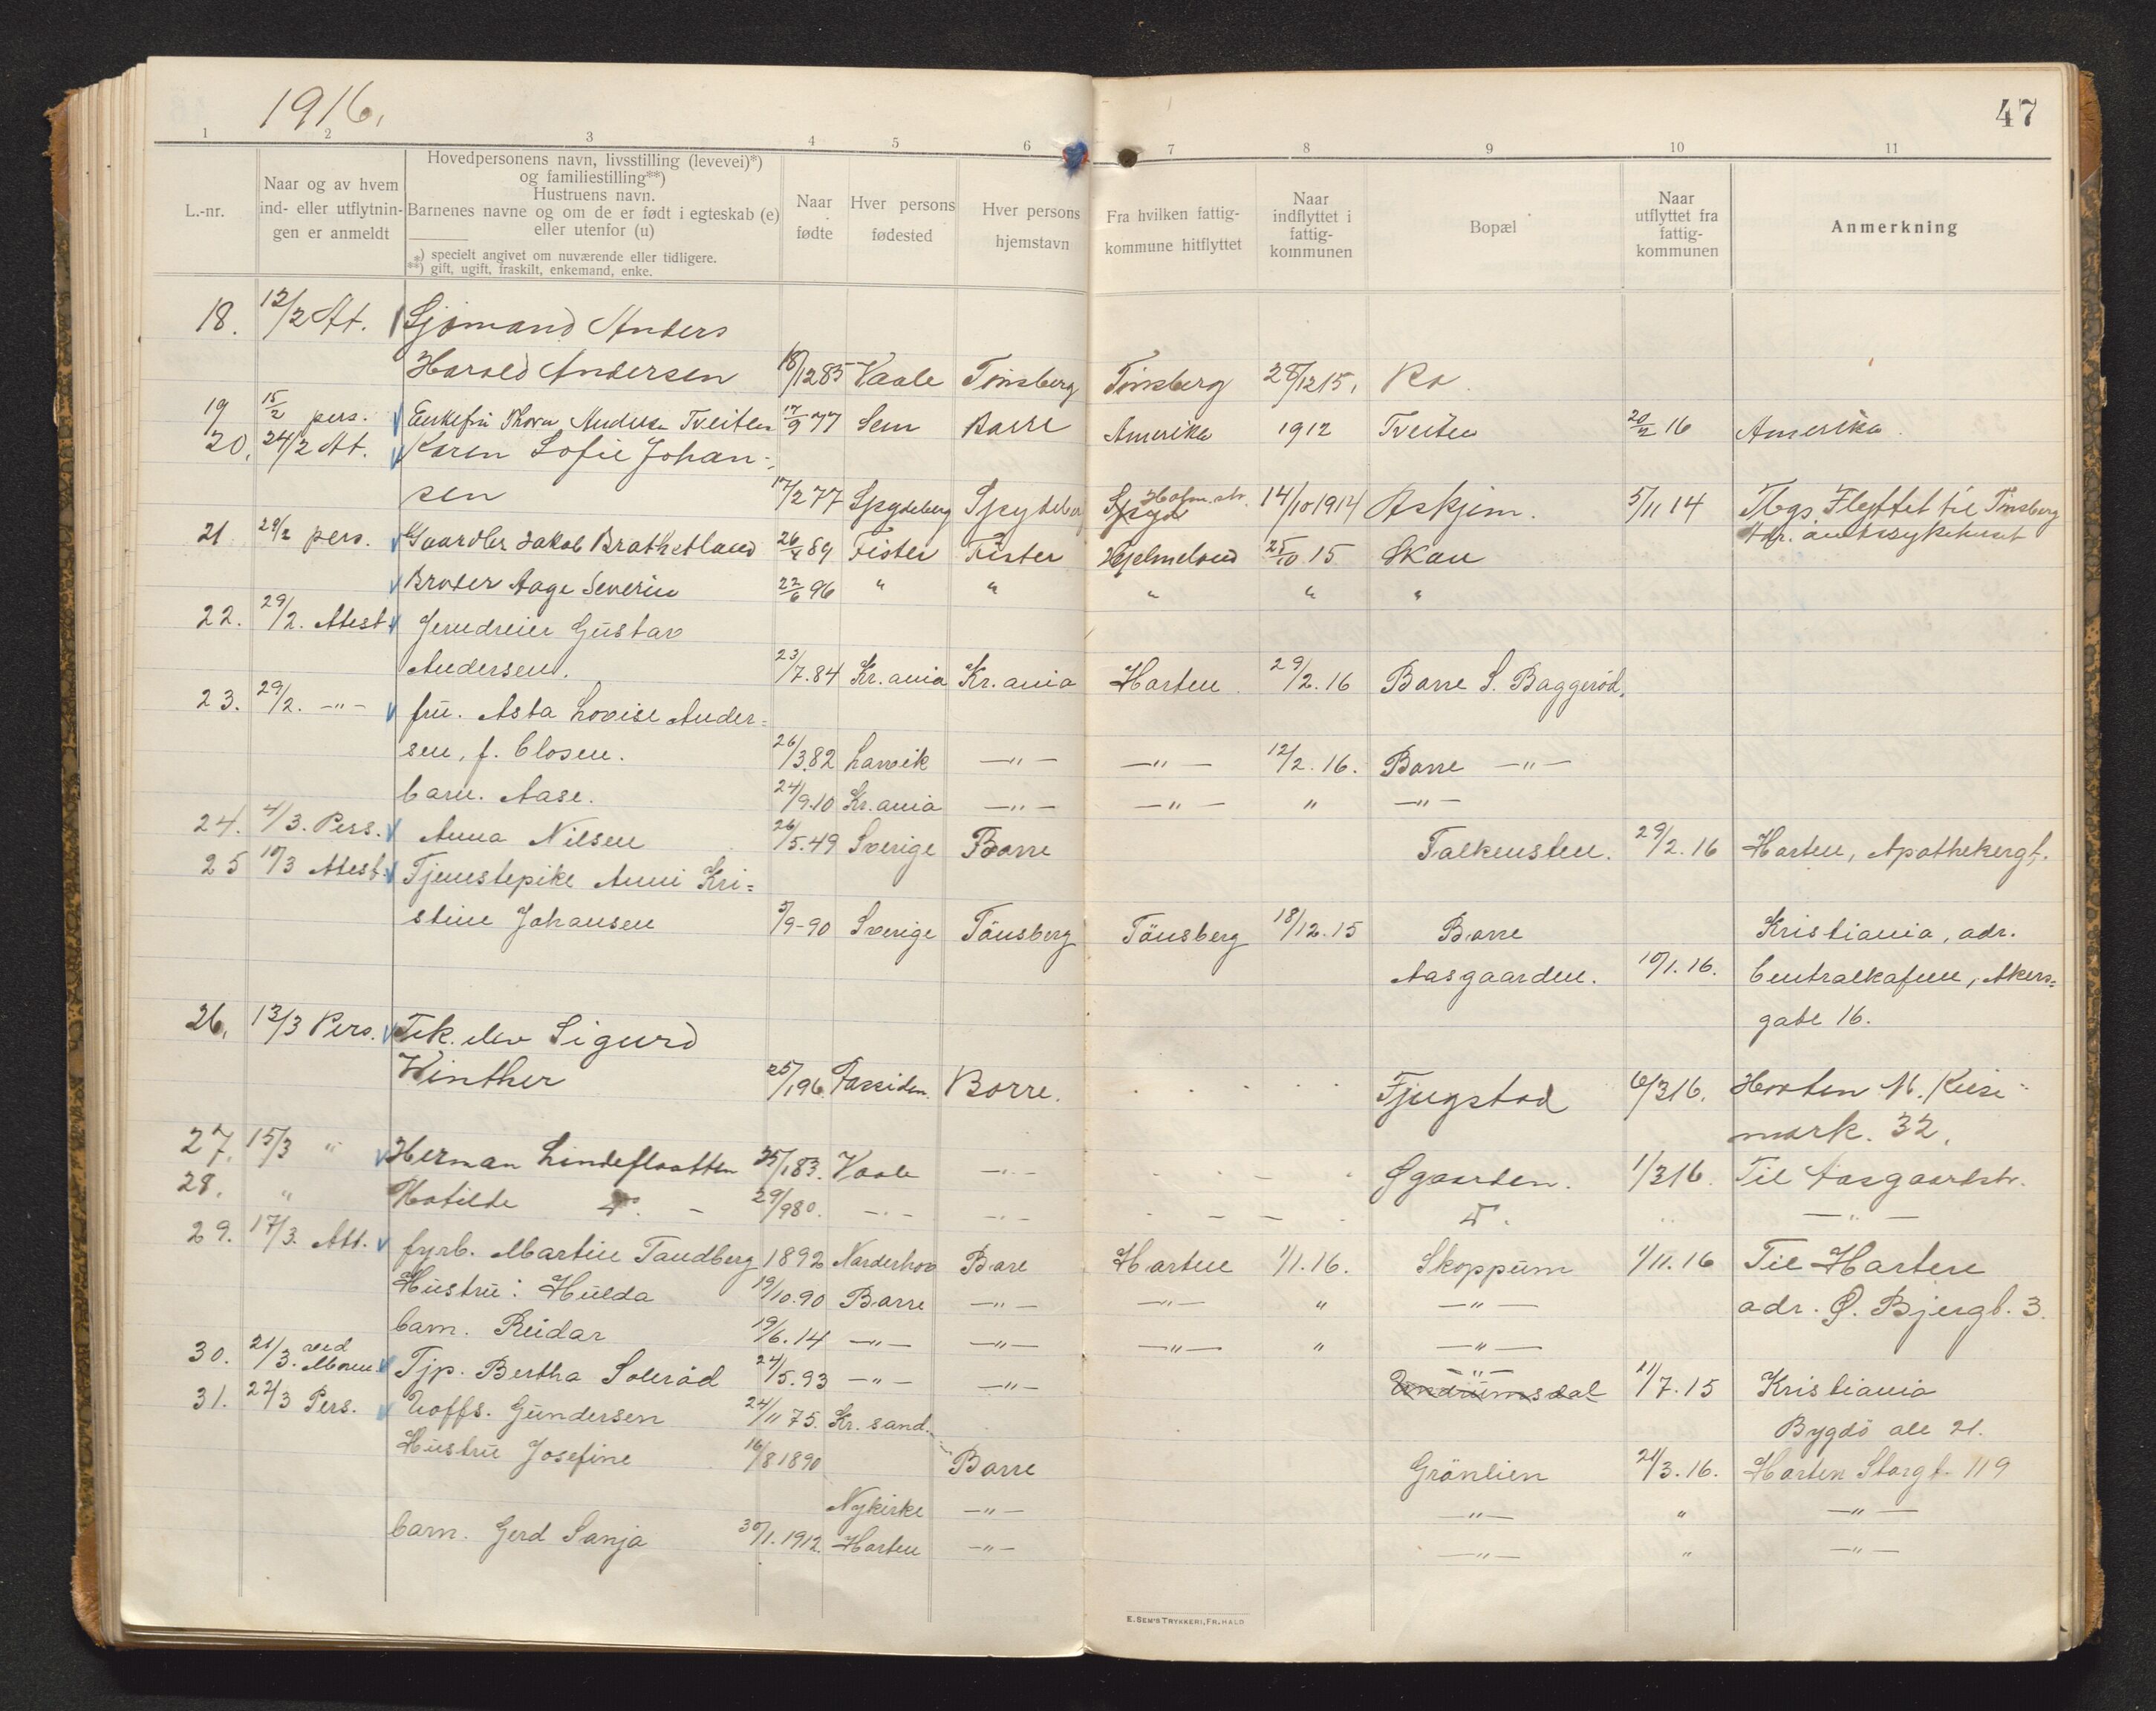 1916.
47
1 2 3 4 5 6 7 8 9 10 11
L.-nr.
Naar og av hvem
ind- eller utflytnin-
gen er anmeldt
Hovedpersonens navn, livsstilling (levevei)*)
og familiestilling**)
Hustruens navn.
Barnenes navne og om de er født i egteskab (e)
eller utenfor (u)
*) specielt angivet om nuværende eller tidligere.
**) gift, ugift, fraskilt, enkemand, enke.
Naar
fødte
Hver persons
fødested
Hver persons
hjemstavn
Fra hvilken fattig-
kommune hitflyttet
Naar
indflyttet i
fattig-
kommunen
Bopæl
Naar
utflyttet fra
fattig-
kommunen
Anmerkning
18. 12/2 At. Sjømand Anders
Harald Andersen 18/12 85 Vaale Tønsberg Tønsberg 28/12 15. Ra
19 15/2 pers. Enkefru Thora Andersen Tveiten 17/9 77 Sem Borre Amerika 1912 Tveiten 20/2 16 Amerika
20. 24/2 At. Karen Sofie Johan-
sen 17/2 77 Spydeberg Spydeberg Holm.str. 14/10 1914 Askjem. 5/11 14 Flyttet til Tønsberg
Adr. amtssykehuset
21 29/2 pers. Gaardbr Jakob Brathetland 26/4 89 Fister Fister Hjelmeland 25/10 15 Skau
Broder Aage Severin 22/6 96 " " " " "
22. 29/2. Atest. Jerndreier Gustav
Andersen. 23/7.84 Kr.ania Kr.ania Horten 29/2.16 Borre S. Baggerød.
23. 29/2. -"- fru. Asta Lovise Ander=
sen, f. Closen. 26/3.82 Larvik -"- -"- 12/2.16. Borre -"-
barn. Aase. 24/9.10 Kr.ania -"- -"- " -"-
24. 4/3. Pers. Anna Nilsen 26/5.49 Sverige Borre Falkensten. 29/2.16 Horten, Apothekergt.
25 10/3 Atest. Tjenestepike Anni Kri=
stine Johansen 5/9-90 Sverige Tønsberg Tønsberg 18/12.15 Borre Kristiania, adr.
Aasgaarden. 10/1.16. Centralkafeen, Akers=
gate 16.
26. 13/3 Pers. Tek. elev Sigurd
Winther 25/1 96. Borre. Fjugstad 6/3 16. Horten N. Keise-
mark. 32.
27. 15/3 " Herman Lindefloatten 25/1 83. Vaale -"- Øgaarden. 1/3 16. Til Aasgaardstr.
28. " Matilde D. - 29/9 80. -"- -"- D. -"-
29. 17/3. Att. fyrb. Martin Tandberg 1892 Norderhov Bore Horten 1/1.16. Skoppum 1/11.16 Til Horten
Hustru: Hulda 19/10.90 Borre -"- -"- " -"- adr. Ø. Bjergt. 3.
barn. Reidar 19/6.14 -"- -"- -"- " -"-
30. 21/3. ved Moren Tjp. Bertha Solerød 24/5.93 -"- -"- -"- Undrumsdal 11/7.15 Kristiania
31. 22/3 Pers. Uoffs. Gundersen 24/11 75. Kr.sand. Bygdö ale 21.
Hustru Josefine 16/8 1890 Borre Grönlien 21/3.16. Horten Storgt. 119
Nykirke -"- -"- " -"-
barn. Gerd Sanja 30/1.1912. Horten -"- -"- " -"-
E. SEM'S TRYKKERI, FR.HALD